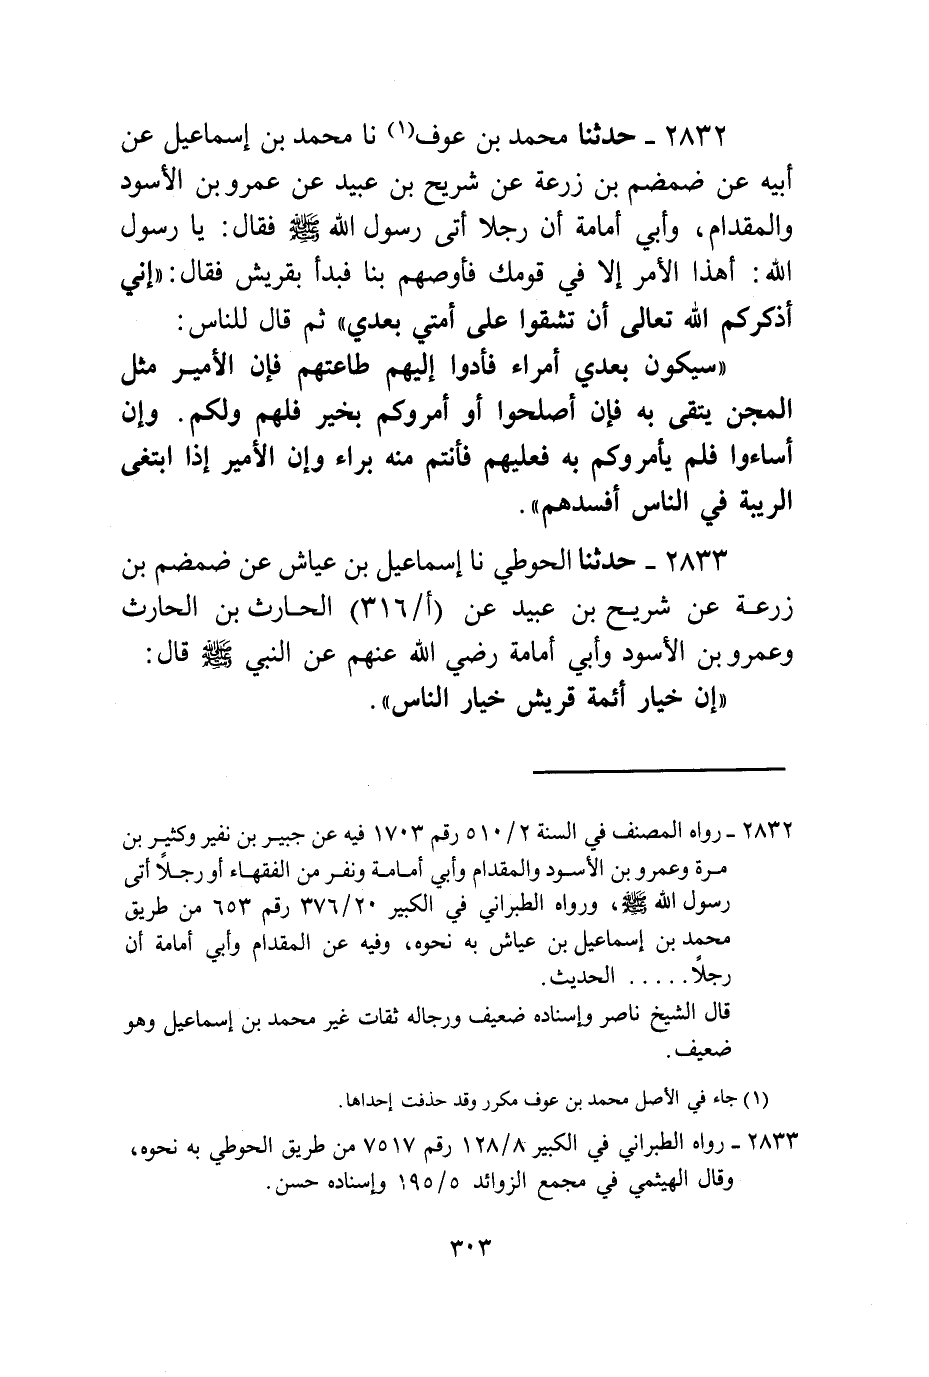 ٢٨٣٢ ـ حدثنا محمد بن عوف(١) نا محمد بن إسماعيل عن
أبيه عن ضمضم بن زرعة عن شريح بن عبيد عن عمرو بن الأسود
والمقدام، وأبي أمامة أن رجلا أتى رسول الله ﷺ فقال: يا رسول
الله: أهذا الأمر إلا في قومك فأوصهم بنا فبدأ بقريش فقال: «إني
أذكركم الله تعالى أن تشقوا على أمتي بعدي» ثم قال للناس:
«سيكون بعدي أمراء فأدوا إليهم طاعتهم فإن الأمير مثل
المجن يتقى به فإن أصلحوا أو أمروكم بخير فلهم ولكم. وإن
أساءوا فلم يأمروكم به فعليهم فأنتم منه براء وإن الأمير إذا ابتغى
الريبة في الناس أفسدهم».
٢٨٣٣ ـ حدثنا الحوطي نا إسماعيل بن عياش عن ضمضم بن
زرعة عن شريح بن عبيد عن (أ/٣١٦) الحارث بن الحارث
وعمرو بن الأسود وأبي أمامة رضي الله عنهم عن النبي ﷺ قال:
«إن خيار أئمة قريش خيار الناس».
٢٨٣٢ ـ رواه المصنف في السنة ٥١٠/٢ رقم ١٧٠٣ فيه عن جبير بن نفير وكثير بن
مرة وعمرو بن الأسود والمقدام وأبي أمامة ونفر من الفقهاء أو رجلاً أتى
رسول الله ﷺ، ورواه الطبراني في الكبير ٣٧٦/٢٠ رقم ٦٥٣ من طريق
محمد بن إسماعيل بن عياش به نحوه، وفيه عن المقدام وأبي أمامة أن
رجلاً..... الحديث.
قال الشيخ ناصر وإسناده ضعيف ورجاله ثقات غير محمد بن إسماعيل وهو
ضعيف.
(١) جاء في الأصل محمد بن عوف مكرر وقد حذفت إحداها.
٢٨٣٣ ـ رواه الطبراني في الكبير ١٢٨/٨ رقم ٧٥١٧ من طريق الحوطي به نحوه،
وقال الهيثمي في مجمع الزوائد ١٩٥/٥ وإسناده حسن.
٣٠٣